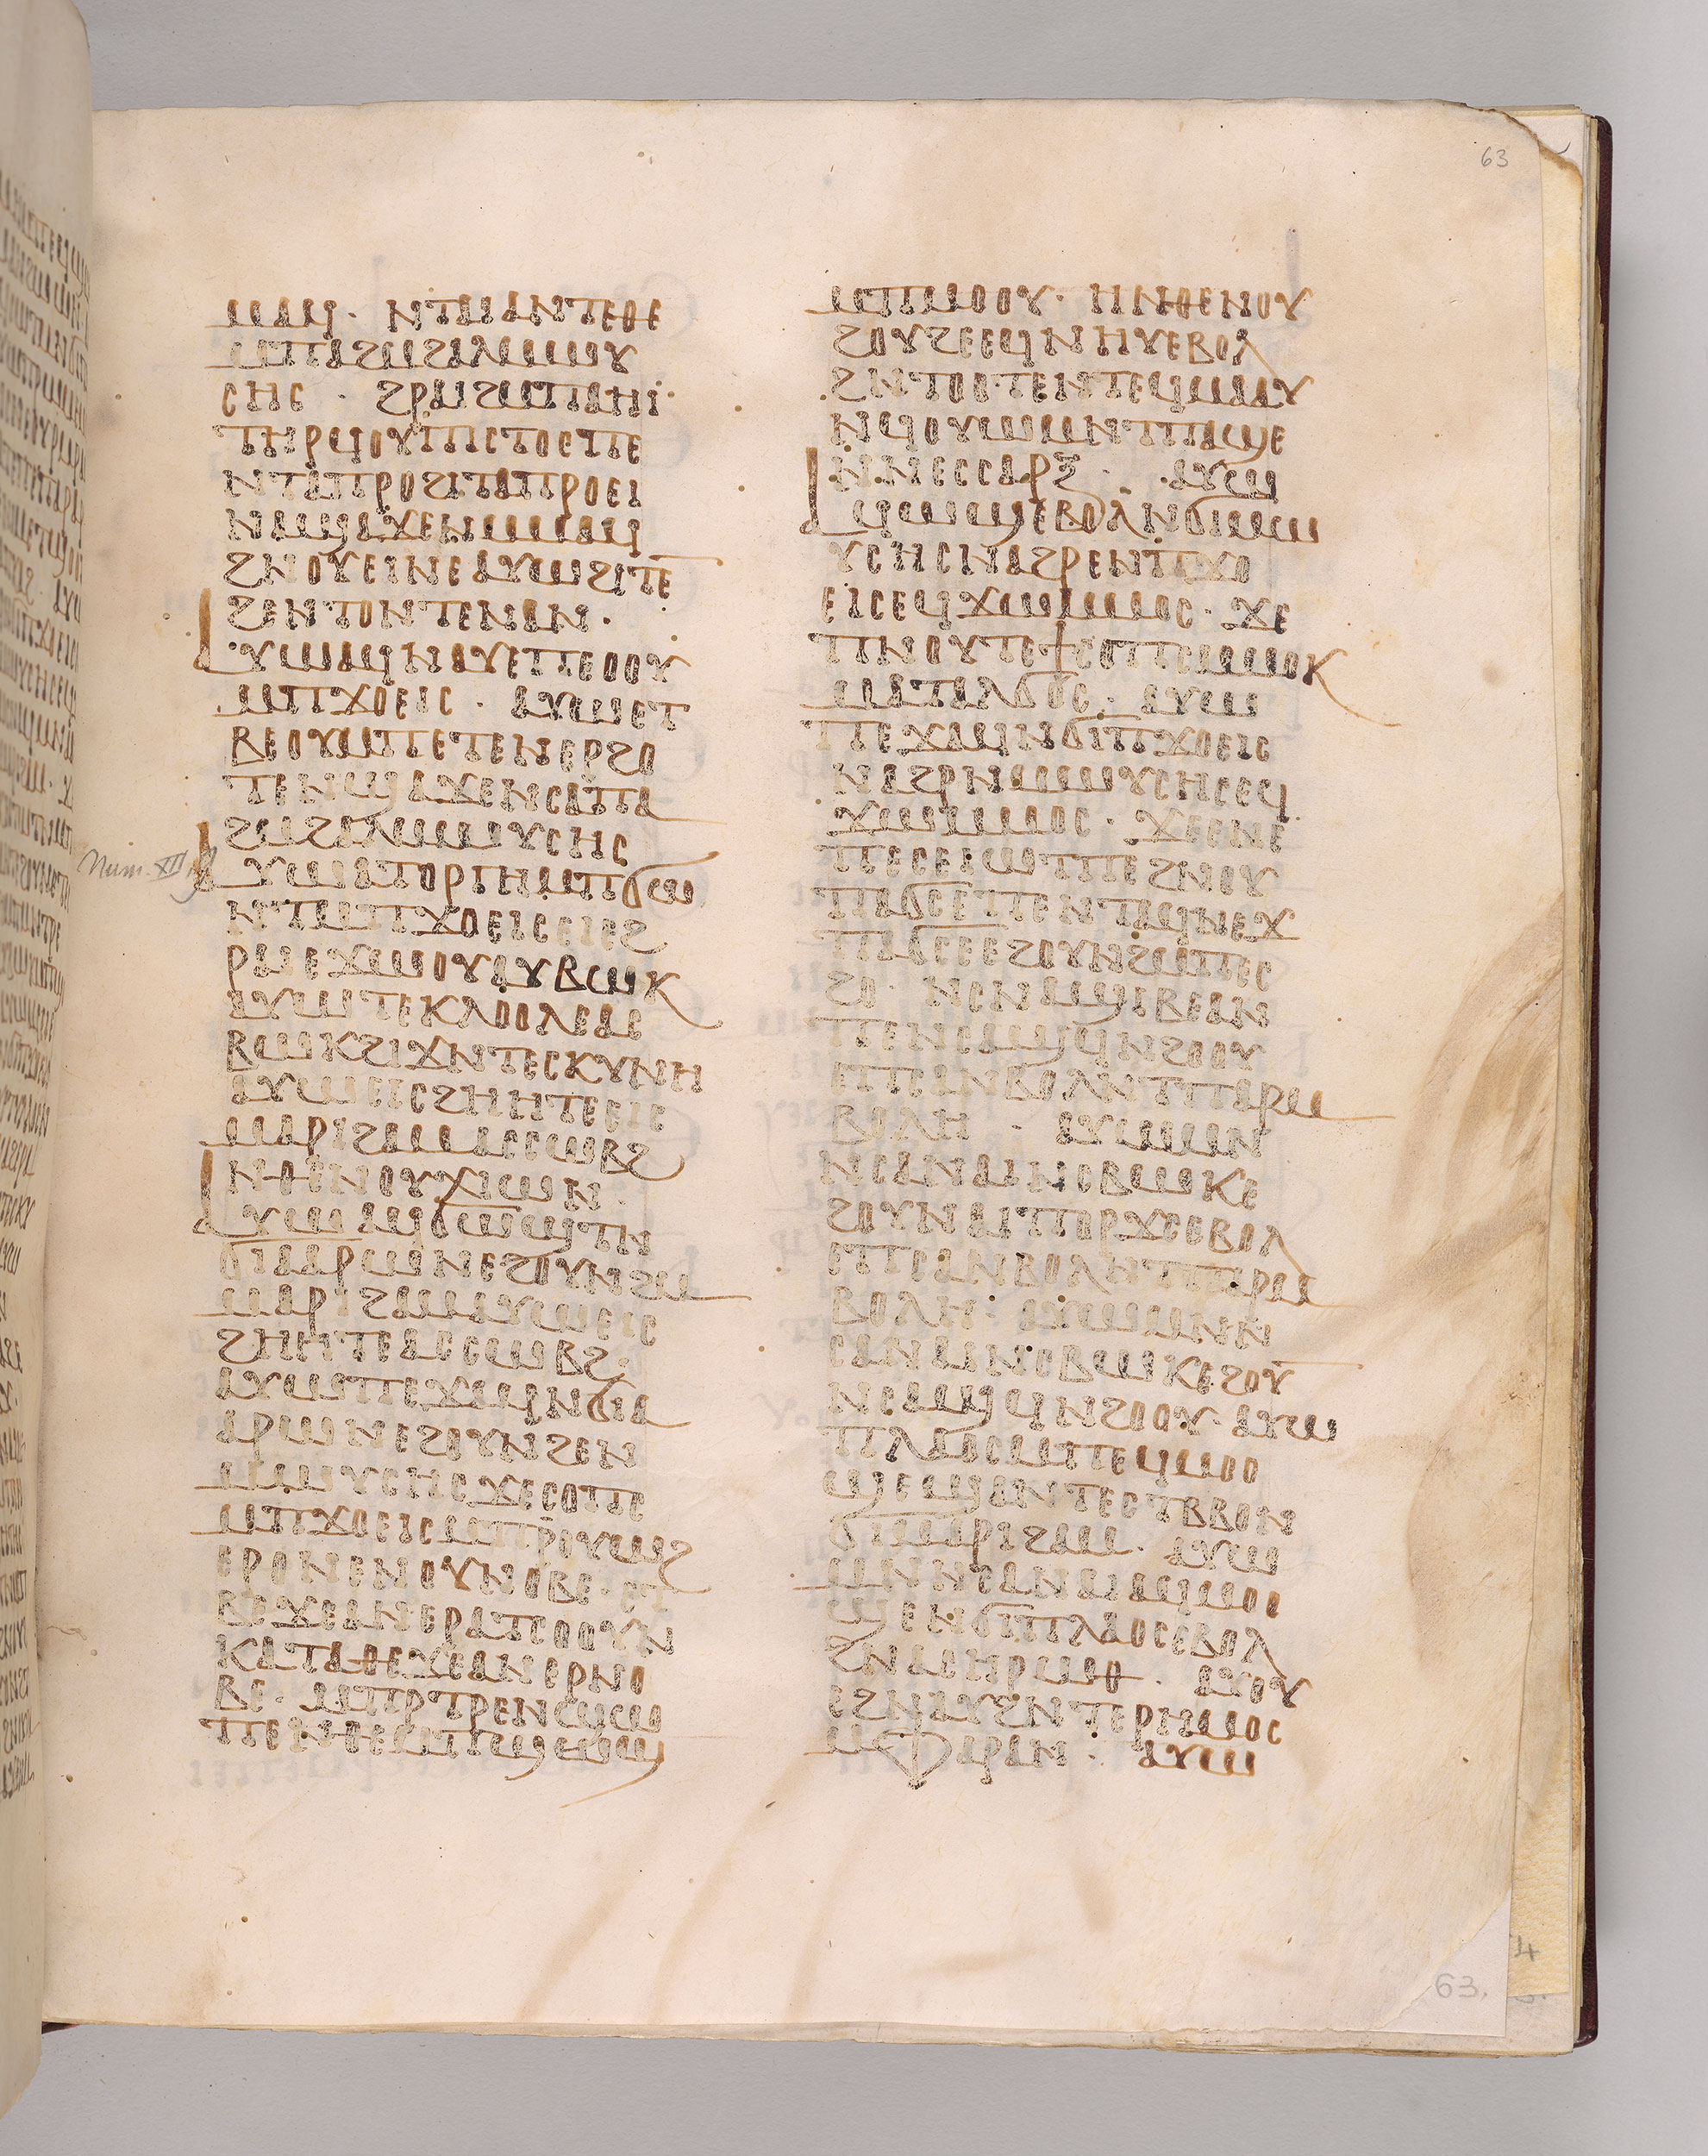 ⲙⲙⲁϥ · ⲛⲧⲁⲓⲁⲛⲧⲉⲑⲉ
ⲙⲡⲁϩⲙϩⲁⲗⲙⲱⲩ
ⲥⲏⲥ · ϩⲣⲁⲓϩⲙⲡⲁⲏⲓ·
ⲧⲏⲣϥⲟⲩⲡⲓⲥⲧⲟⲥⲡⲉ
ⲛⲧⲁⲡⲣⲟϩⲓⲧⲁⲡⲣⲟⲉⲓ
ⲛⲁϣⲁϫⲉⲛⲙⲙⲁϥ
ϩⲛⲟⲩⲉⲓⲛⲉⲁⲩⲱϩⲓⲧⲉ
ϩⲉⲛⲧⲟⲛⲧⲉⲛⲁⲛ·
ⲁⲩⲱⲁϥⲛⲁⲩⲉⲡⲉⲟⲟⲩ
ⲙⲡϫⲟⲉⲓⲥ · ⲁⲩⲱⲉⲧ
ⲃⲉⲟⲩⲙⲡⲉⲧⲉⲛⲉⲣϩⲟ
ⲧⲉⲛϣⲁϫⲉⲛⲥⲁⲡⲁ
ϩⲙϩⲁⲗⲙⲱⲩⲥⲏⲥ
Num. XII 9
ⲁⲩⲱⲁⲧⲟⲣⲅⲏⲙⲡϭⲱ
ⲛⲧⲙⲡϫⲟⲉⲓⲥⲉⲓⲉϩ
ⲣⲁⲓⲉϫⲱⲟⲩⲁⲩⲃⲱⲕ
ⲁⲩⲱⲧⲉⲕⲗⲟⲟⲗⲉⲁⲥ
ⲃⲱⲕϩⲓϫⲛⲧⲉⲥⲕⲩⲛⲏ
ⲁⲩⲱⲉⲓⲥϩⲏⲏⲧⲉⲉⲓⲥ
ⲙⲁⲣⲓϩⲁⲙⲁⲥⲥⲱⲃϩ
ⲛⲑⲉⲛⲟⲩⲭⲓⲱⲛ·
ⲁⲩⲱⲁϥϭⲱϣⲧⲛ
ϭⲓⲁⲁⲣⲱⲛⲉϩⲟⲩⲛϩⲙ
ⲙⲁⲣⲓϩⲁⲙⲁⲩⲱⲉⲓⲥ
ϩⲏⲏⲧⲉⲁⲥⲥⲱⲃϩ·
ⲁⲩⲱⲡⲉϫⲁϥⲛϭⲓⲁ
ⲁⲣⲱⲛⲉϩⲟⲩⲛϩⲉⲛ
ⲙⲱⲩⲥⲏⲥϫⲉⲥⲟⲡⲥ
ⲙⲡϫⲟⲉⲓⲥⲙⲡⲣⲟⲩⲱϩ
ⲉⲣⲟⲛⲉⲛⲟⲩⲛⲟⲃⲉ·ⲉⲧ
ⲃⲉϫⲉⲁⲛⲉⲣⲁⲧⲥⲟⲟⲩⲛ
ⲕⲁⲧⲁⲑⲉϫⲉⲁⲛⲉⲣⲛⲟ
ⲃⲉ· ⲙⲡⲣⲧⲣⲉⲛϣⲱ
ⲡⲉⲛⲑⲉⲙⲡϣⲏϣ
ⲙⲡⲙⲟⲟⲩ· ⲏⲛⲑⲉⲛⲟⲩ
ϩⲟⲩϩⲉⲉϥⲛⲏⲩⲉⲃⲟⲗ
ϩⲛⲧⲟⲟⲧⲉⲛⲧⲉϥⲙⲁⲁⲩ
ⲛϥⲟⲩⲱⲙⲛⲧⲡⲁϣⲉ
ⲛⲛⲉⲥⲥⲁⲣⲝ · ⲁⲩⲱ
ⲁϥⲱϣⲉⲃⲟⲗⲛϭⲓⲙⲱ
ⲩⲥⲏⲥⲛⲁϩⲣⲉⲛⲡϫⲟ
ⲉⲓⲥⲉϥϫⲱⲙⲙⲟⲥ· ϫⲉ
ⲡⲛⲟⲩⲧⲉϯⲥⲟⲡⲥⲙⲙⲟⲕ
ⲙⲁⲧⲁⲗϭⲟⲥ· ⲁⲩⲱ
ⲡⲉϫⲁϥⲛϭⲓⲡϫⲟⲉⲓⲥ
ⲛⲁϩⲣⲛⲙⲱⲩⲥⲏⲥⲉϥ
ϫⲱⲙⲙⲟⲥ· ϫⲉⲉⲛⲉ
ⲡⲉⲥⲉⲓⲱⲧⲡⲉϩⲛⲟⲩ
ⲡⲁϭⲥⲉⲡⲉⲛⲧⲁϥⲛⲉϫ
ⲡⲁϭⲥⲉⲉϩⲟⲩⲛϩⲙⲡⲉⲥ
ϩⲟ· ⲛⲥⲛⲁϣⲓⲃⲉⲁⲛ
ⲡⲉⲛⲥⲁϣϥⲛϩⲟⲟⲩ
ⲙⲡⲃⲟⲗⲛⲧⲡⲁⲣⲙ
ⲃⲟⲗⲏ · ⲁⲩⲱⲙⲛ
ⲛⲥⲁⲛⲁⲓⲛⲥⲃⲱⲕⲉ
ϩⲟⲩⲛ ⲡⲟⲣϫⲥⲉⲃⲟⲗ
ⲃⲟⲗⲛⲧⲡⲁⲣⲙ
ⲃⲟⲗⲏ· ⲁⲩⲱⲙⲛⲛ
ⲥⲁⲛⲁⲓⲛⲥⲃⲱⲕⲉϩⲟⲩ
ⲛⲥⲁϣϥⲛϩⲟⲟⲩ· ⲁⲩⲱ
ⲡⲗⲁⲟⲥⲙⲡⲉϥⲙⲟⲟ
ϣⲉϣⲁⲛⲧⲉⲥⲧⲃⲃⲟⲛ
ϭⲓⲙⲁⲣⲓϩⲁⲙ· ⲁⲩⲱ
ⲙⲛⲛⲥⲁⲛⲁⲓⲁϥⲙⲟⲟ
ϣⲉⲛϭⲓⲡⲗⲁⲟⲥⲉⲃⲟⲗ
ϩⲛⲁⲥⲏⲣⲱⲑ· ⲁⲩⲟⲩ
ⲉϩⲛⲁⲩϩⲛⲧⲉⲣⲏⲙⲟⲥ
ⲙⲫⲁⲣⲁⲛ· ⲁⲩⲱ
63
63.